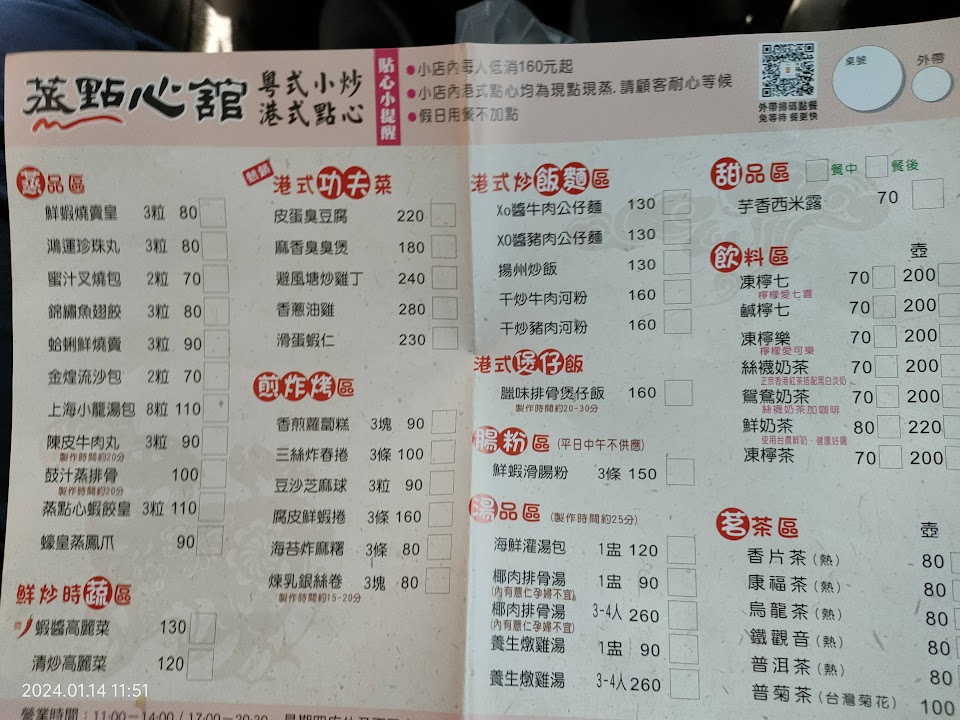 蒸點心館
粵式小炒
港式點心
貼心小提醒
●小店內每人低消160元起
●小店內港式點心均為現點現蒸.請顧客耐心等候
●假日用餐不加點
外帶掃碼點餐
免等待 餐更快
桌號
外帶
蒸品區
鮮蝦燒賣皇 3粒 80
鴻運珍珠丸 3粒 80
蜜汁叉燒包 2粒 70
錦繡魚翅餃 3粒 80
蛤蜊鮮燒賣 3粒 90
金煌流沙包 2粒 70
上海小籠湯包 8粒 110
陳皮牛肉丸 3粒 90
製作時間約20分
鼓汁蒸排骨 100
製作時間約20分
蒸點心蝦餃皇 3粒 110
蠔皇蒸鳳爪 90
鮮炒時蔬區
蝦醬高麗菜 130
清炒高麗菜 120
港式功夫菜
皮蛋臭豆腐 220
麻香臭臭煲 180
避風塘炒雞丁 240
香蔥油雞 280
滑蛋蝦仁 230
煎炸烤區
香煎蘿蔔糕 3塊 90
三絲炸春捲 3條 100
豆沙芝麻球 3粒 90
腐皮鮮蝦捲 3條 160
海苔炸麻糬 3條 80
煉乳銀絲卷 3塊 80
製作時間約15-20分
港式炒飯麵區
Xo醬牛肉公仔麵 130
XO醬豬肉公仔麵 130
揚州炒飯 130
干炒牛肉河粉 160
干炒豬肉河粉 160
港式煲仔飯
臘味排骨煲仔飯 160
製作時間約20-30分
腸粉區 (平日中午不供應)
鮮蝦滑腸粉 3條 150
湯品區 (製作時間約25分)
海鮮灌湯包 1盅 120
椰肉排骨湯 1盅 90
(內有薏仁孕婦不宜)
椰肉排骨湯 3-4人 260
(內有薏仁孕婦不宜)
養生燉雞湯 1盅 90
養生燉雞湯 3-4人 260
甜品區 餐中 餐後
芋香西米露 70
飲料區 壺
凍檸七 70 200
檸檬愛七喜
鹹檸七 70 200
凍檸樂 70 200
檸檬愛可樂
絲襪奶茶 70 200
正宗香港紅茶搭配黑白淡奶
鴛鴦奶茶 70 200
絲襪奶茶加咖啡
鮮奶茶 80 220
使用台農鮮奶,健康好喝
凍檸茶 70 200
茗茶區 壺
香片茶(熱) 80
康福茶(熱) 80
烏龍茶(熱) 80
鐵觀音(熱) 80
普洱茶(熱) 80
普菊茶(台灣菊花) 100
營業時間：11:00-14:00 / 17:00-20:30
2024.01.14 11:51